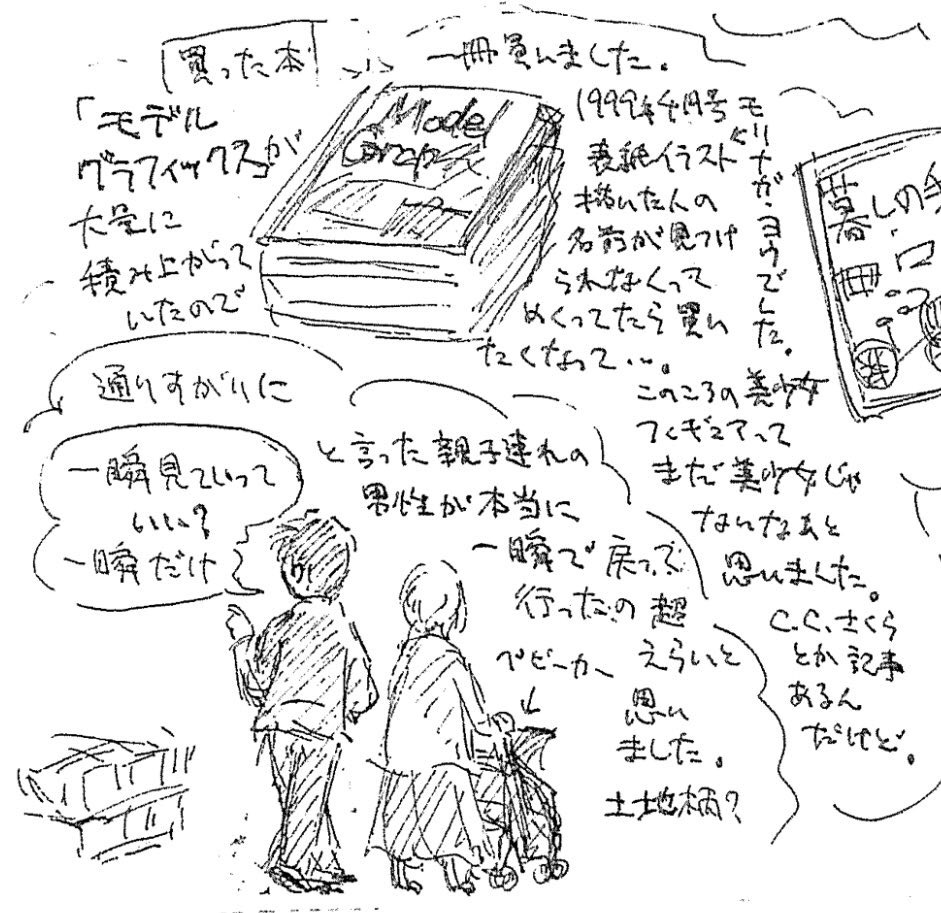 買った本
「モデル
グラフィックス」が
大量に
積み上がって
いたので
Model
Graphix
一冊買いました。
1999年4月号
表紙イラスト
描いた人の
名前が見つけ
られなくって
めくってたら買い
たくなって…。
モリナガ・ヨウでした。
暮しの手
このころの美少女
フィギュアって
まだ美少女じゃ
ないなあと
思いました。
C.C.さくら
とか記事
あるん
だけど。
通りすがりに
一瞬見ていって
いい?
一瞬だけ
と言った親子連れの
男性が本当に
一瞬で戻って
行ったの超
えらいと
思い
ました。
土地柄?
ベビーカー
↓